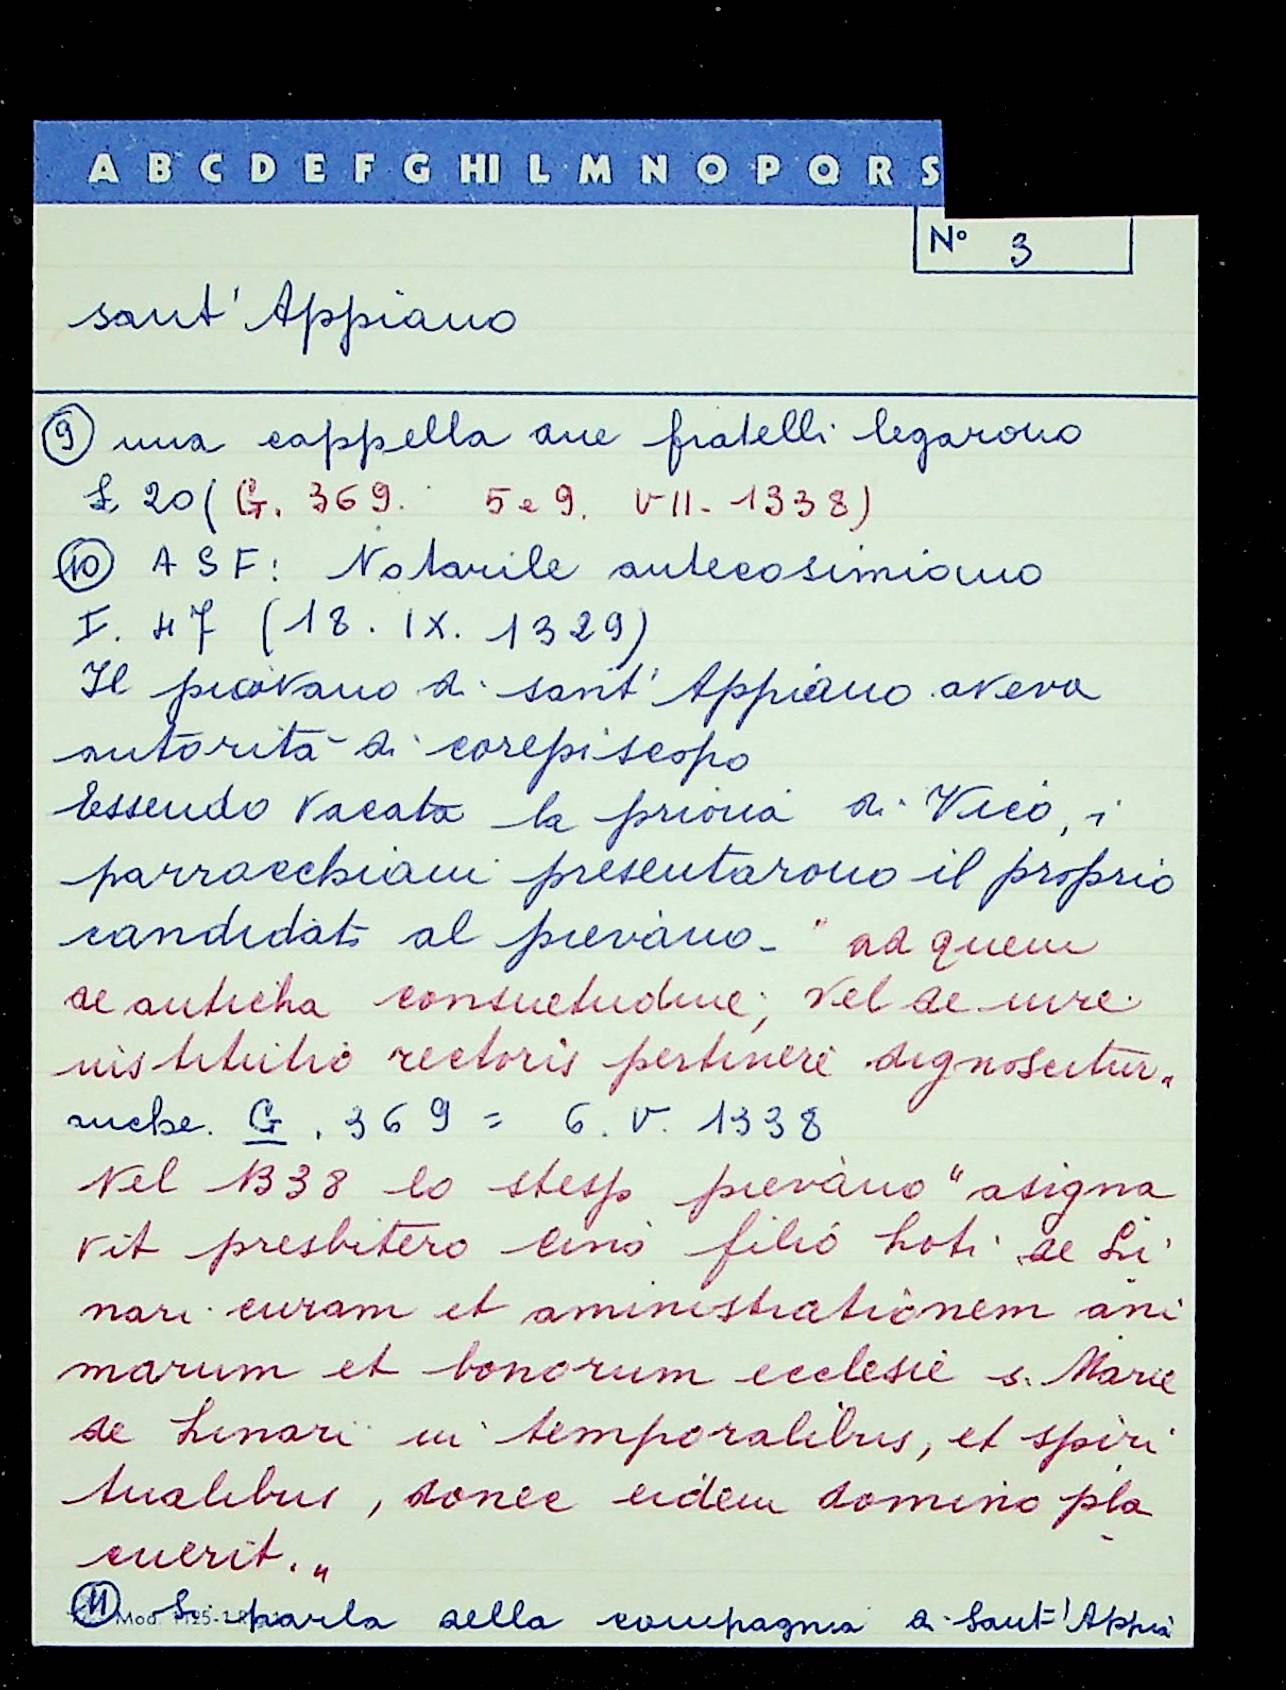 A B C D E F G HI L M N O P Q R S
N° 3
sant' Appiano
9 una cappella due fratelli legarono
£ 20 ( G. 369. 5 e 9. VII. 1338)
10 ASF: Notarile antecosimiano
I. 47 (18. IX. 1329)
Il piovano di sant' Appiano aveva
autorità di corepiscopo
Essendo vacata la prioria di Vico, i
parrocchiani presentarono il proprio
candidato al pievano - " ad quem
de anticha consuetudine, vel de iure
institutio rectoris pertinere dignoscitur "
anche. G. 369 = 6. V. 1338
Nel 1338 lo stesso pievano " asigna
vit presbitero Cino filio Loti de Li
nari curam et aministrationem ani
marum et bonorum ecclesie s. Marie
de Linari in temporalibus, et spiri
tualibus, donec eidem domino pla
cuerit. "
11 Si parla della compagnia di Sant' Appia